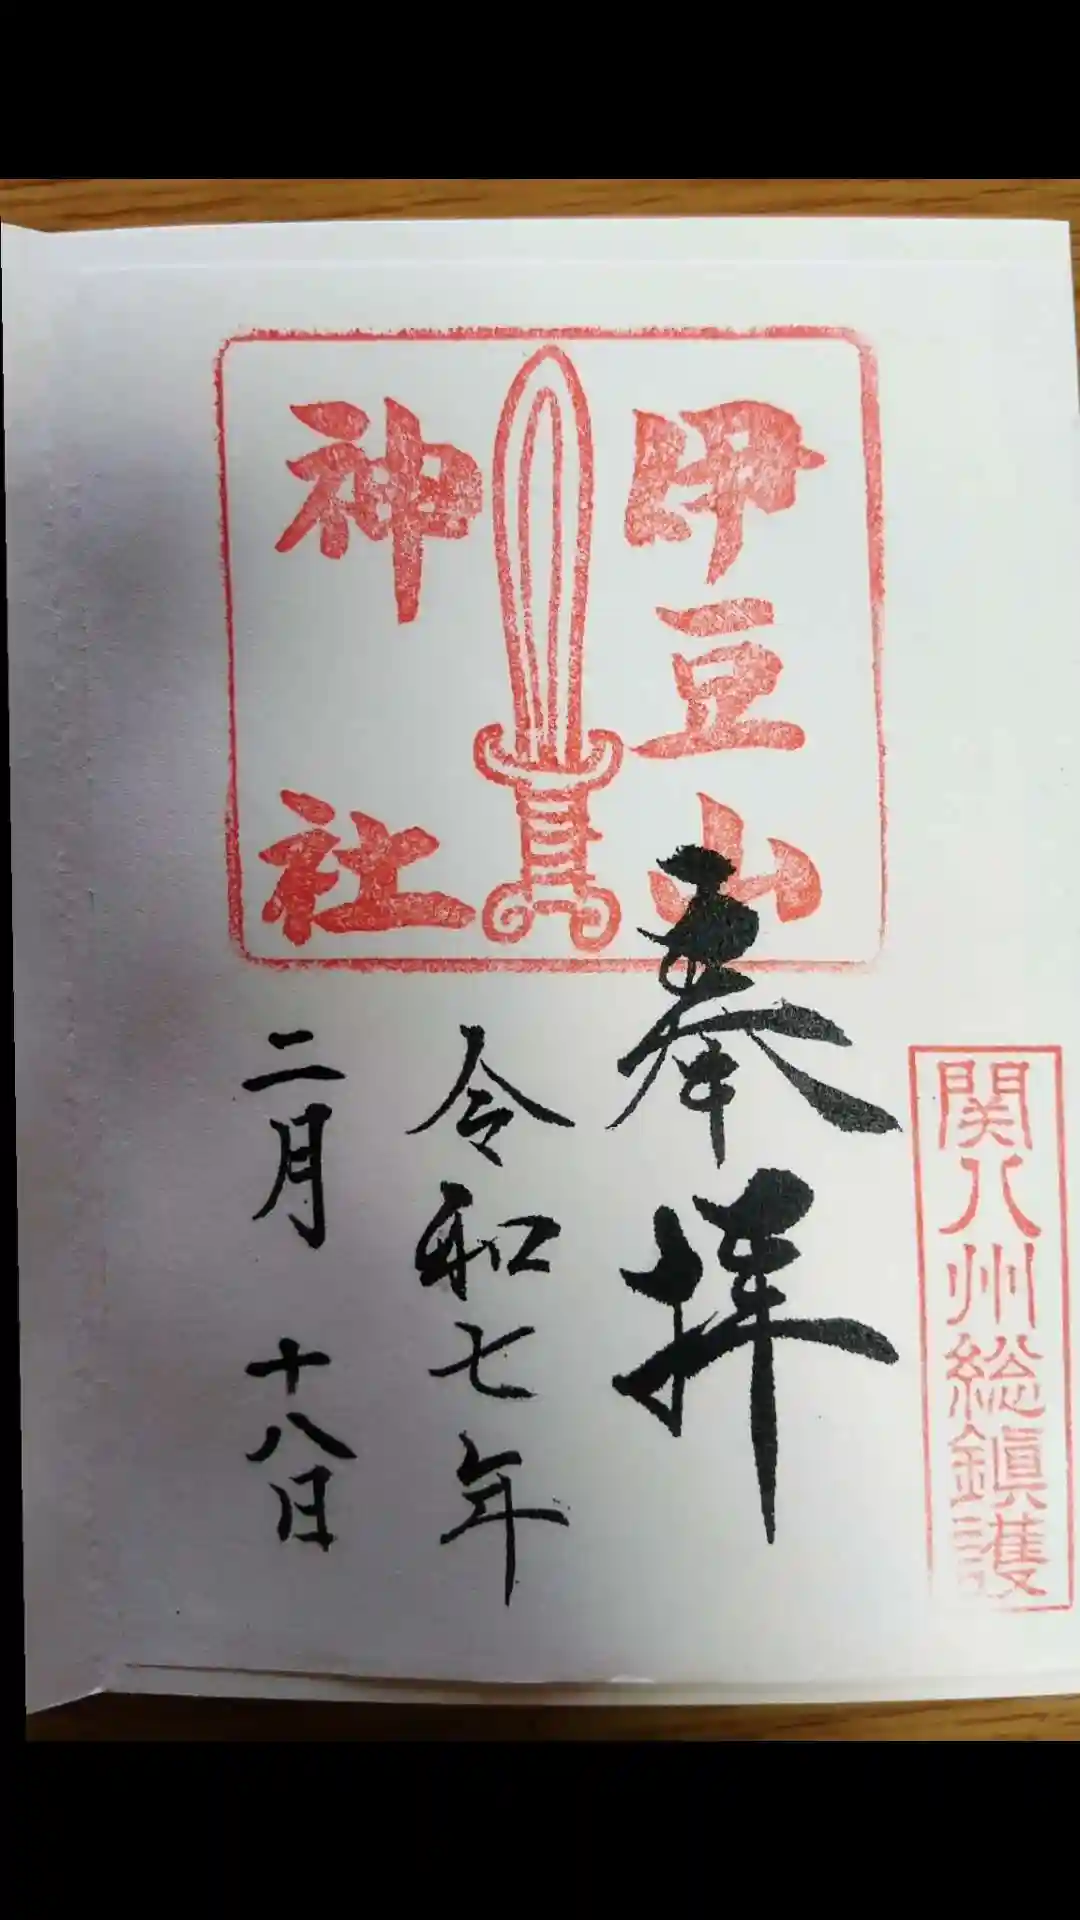 関八州総鎮護
伊豆山
神社
奉拝
令和七年
二月十八日